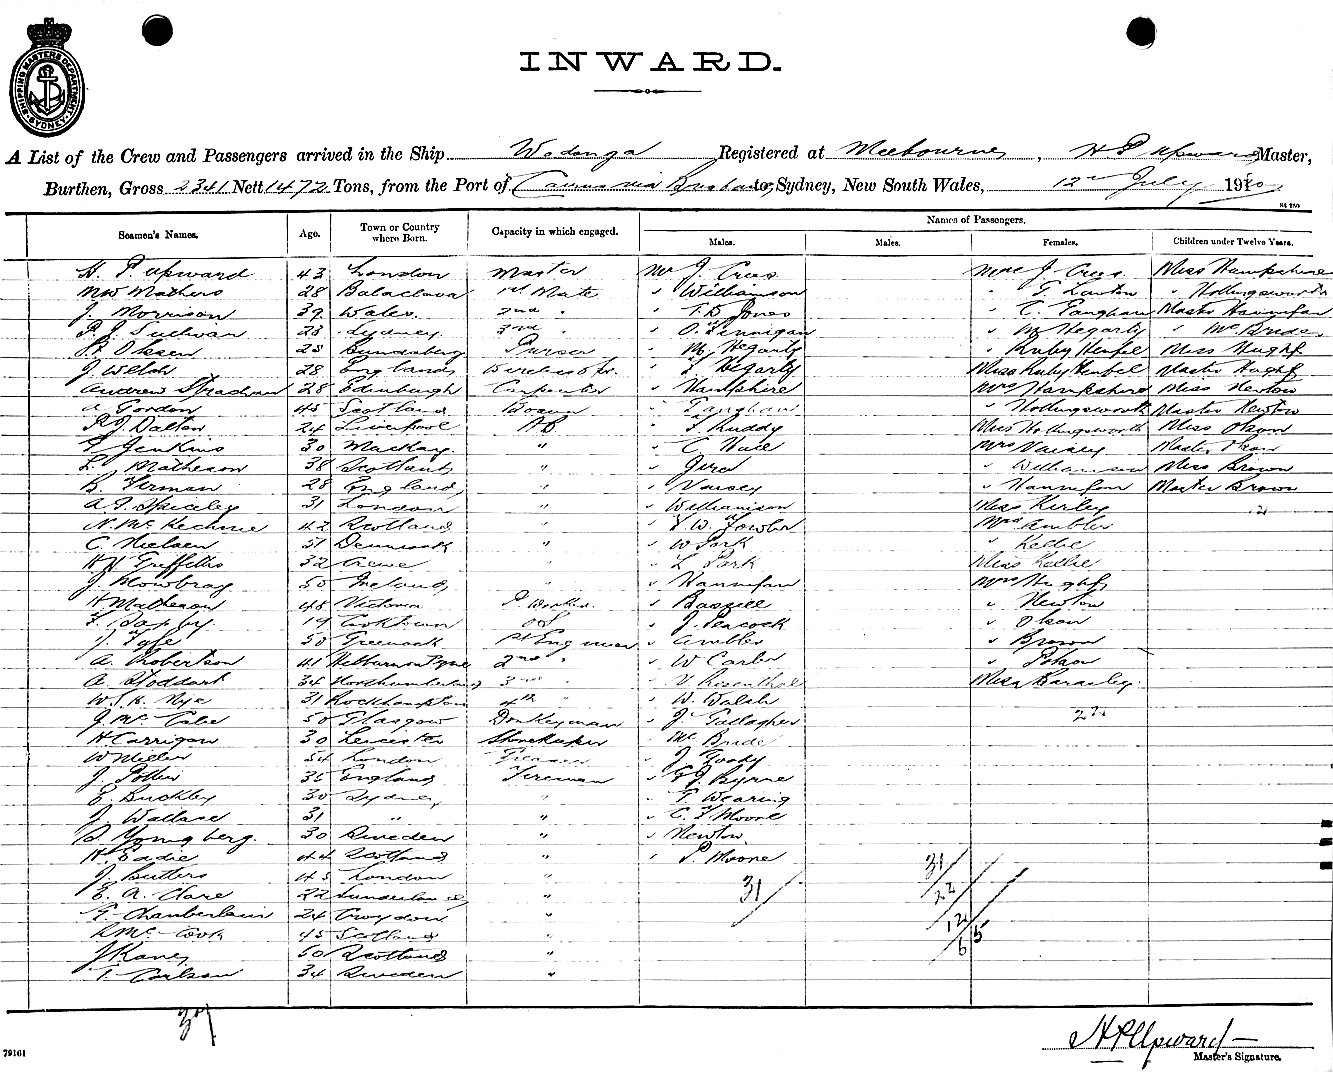 SHIPPING MASTERS DEPARTMENT SYDNEY
INWARD.
A List of the Crew and Passengers arrived in the Ship Wodonga Registered at Melbourne, H P Upward Master,
Burthen, Gross 2341 Nett 1472 Tons, from the Port of Cairns via Brisbane to Sydney, New South Wales, 12 July 1910
Names of Passengers.
Seamen's Names. Age. Town or Country where Born. Capacity in which engaged. Males. Males. Females. Children under Twelve Years.
H. P. Upward 43 London Master Mr J. Cross Mrs J. Cross Miss Hampshire
Mathers 28 Balaclava 1st Mate " Williamson " G Lawton " Hollingsworth
J. Morrison 39 Wales. 2nd " " F. D. Jones " C. Fanghan Master Hannifan
P. J. Sullivan 23 Sydney. 3rd " " O. Finnigan " M Hegarty " McBride
Olssen 25 Bundaberg Purser " M. Hegarty " Ruby Henfel Miss Hughf
J. Welsh 28 England " Hegarty Miss Ruby Henfel Master Hughf
Andrew Strachan 28 Edinburgh Carpenter " Hampshire Mrs Hampshire Miss Newton
A Gordon 45 Scotland Bosun " Fanghan " Hollingsworth Master Newton
P. J. Dalton 24 Liverpool AB " F. Ruddy Miss Hollingsworth Miss Olson
Jenkins 30 Mackay. " " C. Ware Mrs Vaisey Master Olson
L. Matheson 38 Scotland " " " Williamson Miss Brown
B. Firman 28 England " " Vaisey " Hannifan Master Brown
A. F. Spiceley 31 London " " Williamson Miss Kerley 12
N. McKechnie 42 Scotland " " W. Fowler Mrs Ambler
C. Nielsen 51 Denmark " " W Park " Kellie
H. Griffiths 32 Crewe " " L Park Miss Kellie
J. Mowbray 50 Ireland " " Hannifan Mrs Hughf
H Matheson 45 Victoria " " Newton
19 Cooktown OS " J. Peacock " Olson
J. Fyfe 50 Greenock 1st Engineer " Ambler " Brown
A. Robertson 41 Hebburn on Tyne 2nd " " W Carter
A. Stoddart 34 Northumberland 3rd " " V. Rosenthal Miss
W. S. K. Nye 31 Rockhampton 4th " " W. Walsh
J. McCabe 50 Glasgow Donkeyman " J. Gallagher 22
H Carrigan 30 Leicester Storekeeper " McBride
W Miller 54 London Greaser " J Goody
J. 35 England Fireman " Byrne
E. Buckley 30 Sydney " " T. Wearing
J Wallace 31 " " " C. F. Moore
Youngberg. 30 Sweden " " Newton
H. Eadie 44 Scotland " " P. Moore
J. Butters 45 London " 31 31
E. A. Hare 22 Sunderland " 22
Chamberlain 24 Croydon " 12
McCook 45 Scotland " 65
J Kane 50 Scotland "
T. Carlson 34 Sweden "
37
H P Upward
Master's Signature.
79161